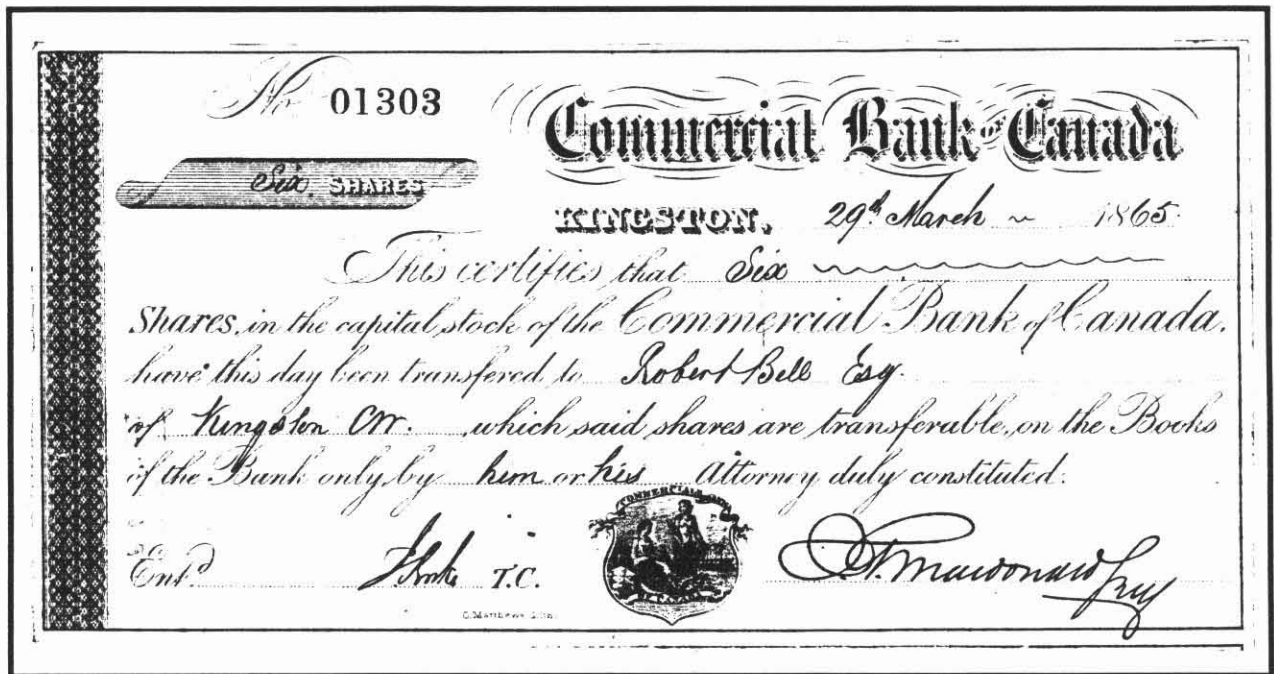 No 01303
Commercial Bank of Canada
Six SHARES
KINGSTON, 29th March 1865.
This certifies that Six
Shares, in the capital stock of the Commercial Bank of Canada,
have this day been transfered to Robert Bell Esq
of Kingston CW. which said shares are transferable, on the Books
of the Bank only, by him or his Attorney duly constituted.
Entd. T.C.
C. Matthews Lith.
COMMERCIAL BANK